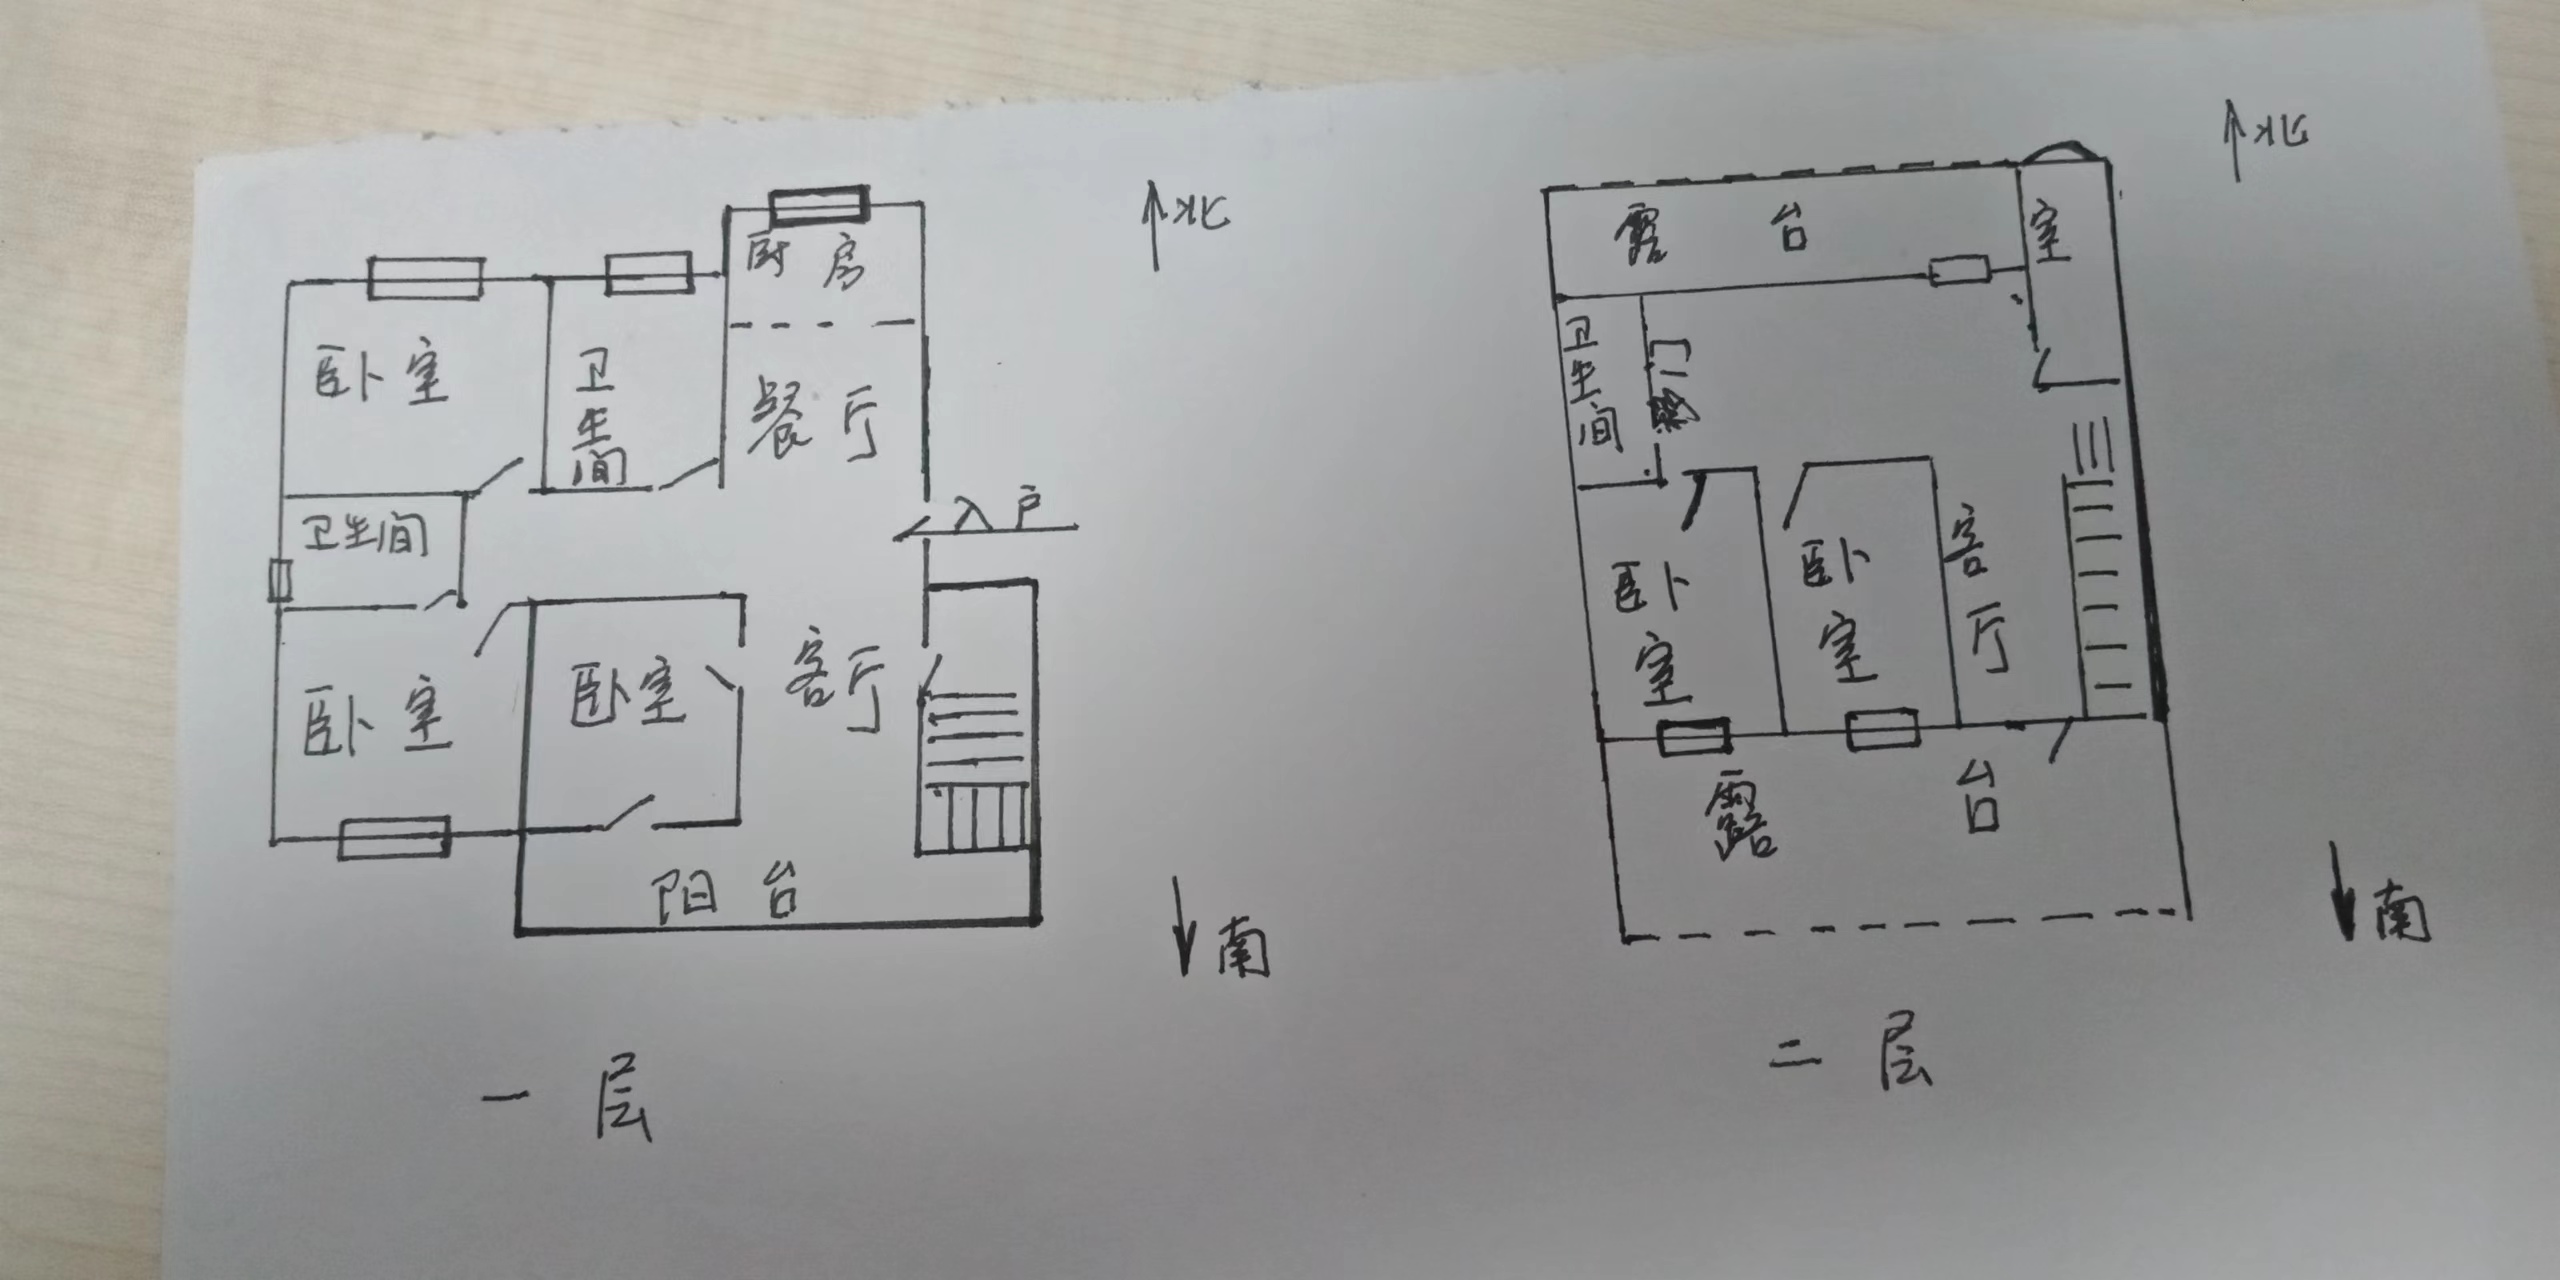 北
厨房
卧室
卫生间
餐厅
入户
卫生间
卧室
卧室
客厅
阳台
南
一层
北
露台
室
卫生间
移门
卧室
卧室
客厅
露台
南
二层